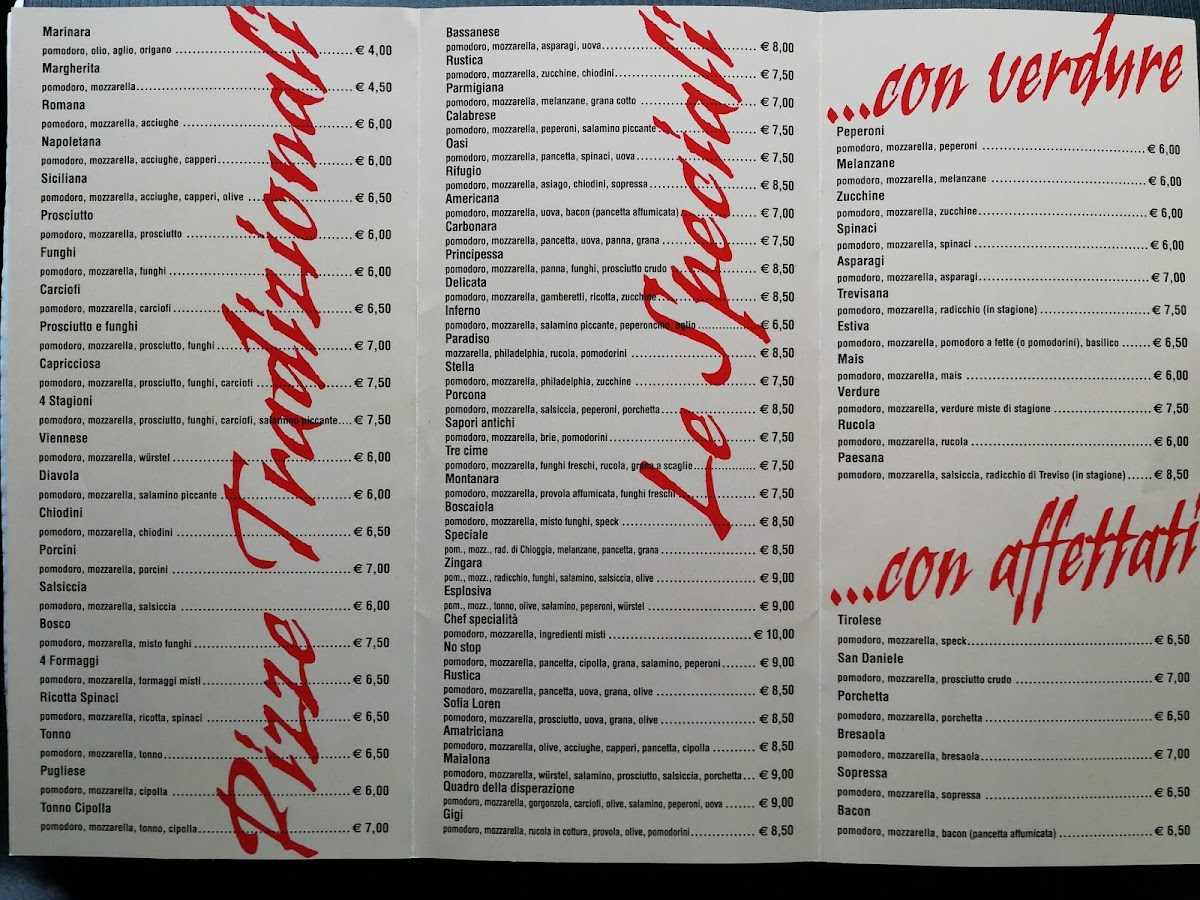 Pizze Tradizionali
Marinara
pomodoro, olio, aglio, origano € 4,00
Margherita
pomodoro, mozzarella € 4,50
Romana
pomodoro, mozzarella, acciughe € 6,00
Napoletana
pomodoro, mozzarella, acciughe, capperi € 6,00
Siciliana
pomodoro, mozzarella, acciughe, capperi, olive € 6,50
Prosciutto
pomodoro, mozzarella, prosciutto € 6,00
Funghi
pomodoro, mozzarella, funghi € 6,00
Carciofi
pomodoro, mozzarella, carciofi € 6,50
Prosciutto e funghi
pomodoro, mozzarella, prosciutto, funghi € 7,00
Capricciosa
pomodoro, mozzarella, prosciutto, funghi, carciofi € 7,50
4 Stagioni
pomodoro, mozzarella, prosciutto, funghi, carciofi, salamino piccante € 7,50
Viennese
pomodoro, mozzarella, würstel € 6,00
Diavola
pomodoro, mozzarella, salamino piccante € 6,00
Chiodini
pomodoro, mozzarella, chiodini € 6,50
Porcini
pomodoro, mozzarella, porcini € 7,00
Salsiccia
pomodoro, mozzarella, salsiccia € 6,00
Bosco
pomodoro, mozzarella, misto funghi € 7,50
4 Formaggi
pomodoro, mozzarella, formaggi misti € 6,50
Ricotta Spinaci
pomodoro, mozzarella, ricotta, spinaci € 6,50
Tonno
pomodoro, mozzarella, tonno € 6,50
Pugliese
pomodoro, mozzarella, cipolla € 6,00
Tonno Cipolla
pomodoro, mozzarella, tonno, cipolla € 7,00
Le Speciali
Bassanese
pomodoro, mozzarella, asparagi, uova € 8,00
Rustica
pomodoro, mozzarella, zucchine, chiodini € 7,50
Parmigiana
pomodoro, mozzarella, melanzane, grana cotto € 7,00
Calabrese
pomodoro, mozzarella, peperoni, salamino piccante € 7,50
Oasi
pomodoro, mozzarella, pancetta, spinaci, uova € 7,50
Rifugio
pomodoro, mozzarella, asiago, chiodini, sopressa € 8,50
Americana
pomodoro, mozzarella, uova, bacon (pancetta affumicata) € 7,00
Carbonara
pomodoro, mozzarella, pancetta, uova, panna, grana € 7,50
Principessa
pomodoro, mozzarella, panna, funghi, prosciutto crudo € 8,50
Delicata
pomodoro, mozzarella, gamberetti, ricotta, zucchine € 8,50
Inferno
pomodoro, mozzarella, salamino piccante, peperoncino, aglio € 6,50
Paradiso
mozzarella, philadelphia, rucola, pomodorini € 8,50
Stella
pomodoro, mozzarella, philadelphia, zucchine € 7,50
Porcona
pomodoro, mozzarella, salsiccia, peperoni, porchetta € 8,50
Sapori antichi
pomodoro, mozzarella, brie, pomodorini € 7,50
Tre cime
pomodoro, mozzarella, funghi freschi, rucola, grana a scaglie € 7,50
Montanara
pomodoro, mozzarella, provola affumicata, funghi freschi € 7,50
Boscaiola
pomodoro, mozzarella, misto funghi, speck € 8,50
Speciale
pom., mozz., rad. di Chioggia, melanzane, pancetta, grana € 8,50
Zingara
pom., mozz., radicchio, funghi, salamino, salsiccia, olive € 9,00
Esplosiva
pom., mozz., tonno, olive, salamino, peperoni, würstel € 9,00
Chef specialità
pomodoro, mozzarella, ingredienti misti € 10,00
No stop
pomodoro, mozzarella, pancetta, cipolla, grana, salamino, peperoni € 9,00
Rustica
pomodoro, mozzarella, pancetta, uova, grana, olive € 8,50
Sofia Loren
pomodoro, mozzarella, prosciutto, uova, grana, olive € 8,50
Amatriciana
pomodoro, mozzarella, olive, acciughe, capperi, pancetta, cipolla € 8,50
Maialona
pomodoro, mozzarella, würstel, salamino, prosciutto, salsiccia, porchetta € 9,00
Quadro della disperazione
pomodoro, mozzarella, gorgonzola, carciofi, olive, salamino, peperoni, uova € 9,00
Gigi
pomodoro, mozzarella, rucola in cottura, provola, olive, pomodorini € 8,50
...con verdure
Peperoni
pomodoro, mozzarella, peperoni € 6,00
Melanzane
pomodoro, mozzarella, melanzane € 6,00
Zucchine
pomodoro, mozzarella, zucchine € 6,00
Spinaci
pomodoro, mozzarella, spinaci € 6,00
Asparagi
pomodoro, mozzarella, asparagi € 7,00
Trevisana
pomodoro, mozzarella, radicchio (in stagione) € 7,50
Estiva
pomodoro, mozzarella, pomodoro a fette (o pomodorini), basilico € 6,50
Mais
pomodoro, mozzarella, mais € 6,00
Verdure
pomodoro, mozzarella, verdure miste di stagione € 7,50
Rucola
pomodoro, mozzarella, rucola € 6,00
Paesana
pomodoro, mozzarella, salsiccia, radicchio di Treviso (in stagione) € 8,50
...con affettati
Tirolese
pomodoro, mozzarella, speck € 6,50
San Daniele
pomodoro, mozzarella, prosciutto crudo € 7,00
Porchetta
pomodoro, mozzarella, porchetta € 6,50
Bresaola
pomodoro, mozzarella, bresaola € 7,00
Sopressa
pomodoro, mozzarella, sopressa € 6,50
Bacon
pomodoro, mozzarella, bacon (pancetta affumicata) € 6,50